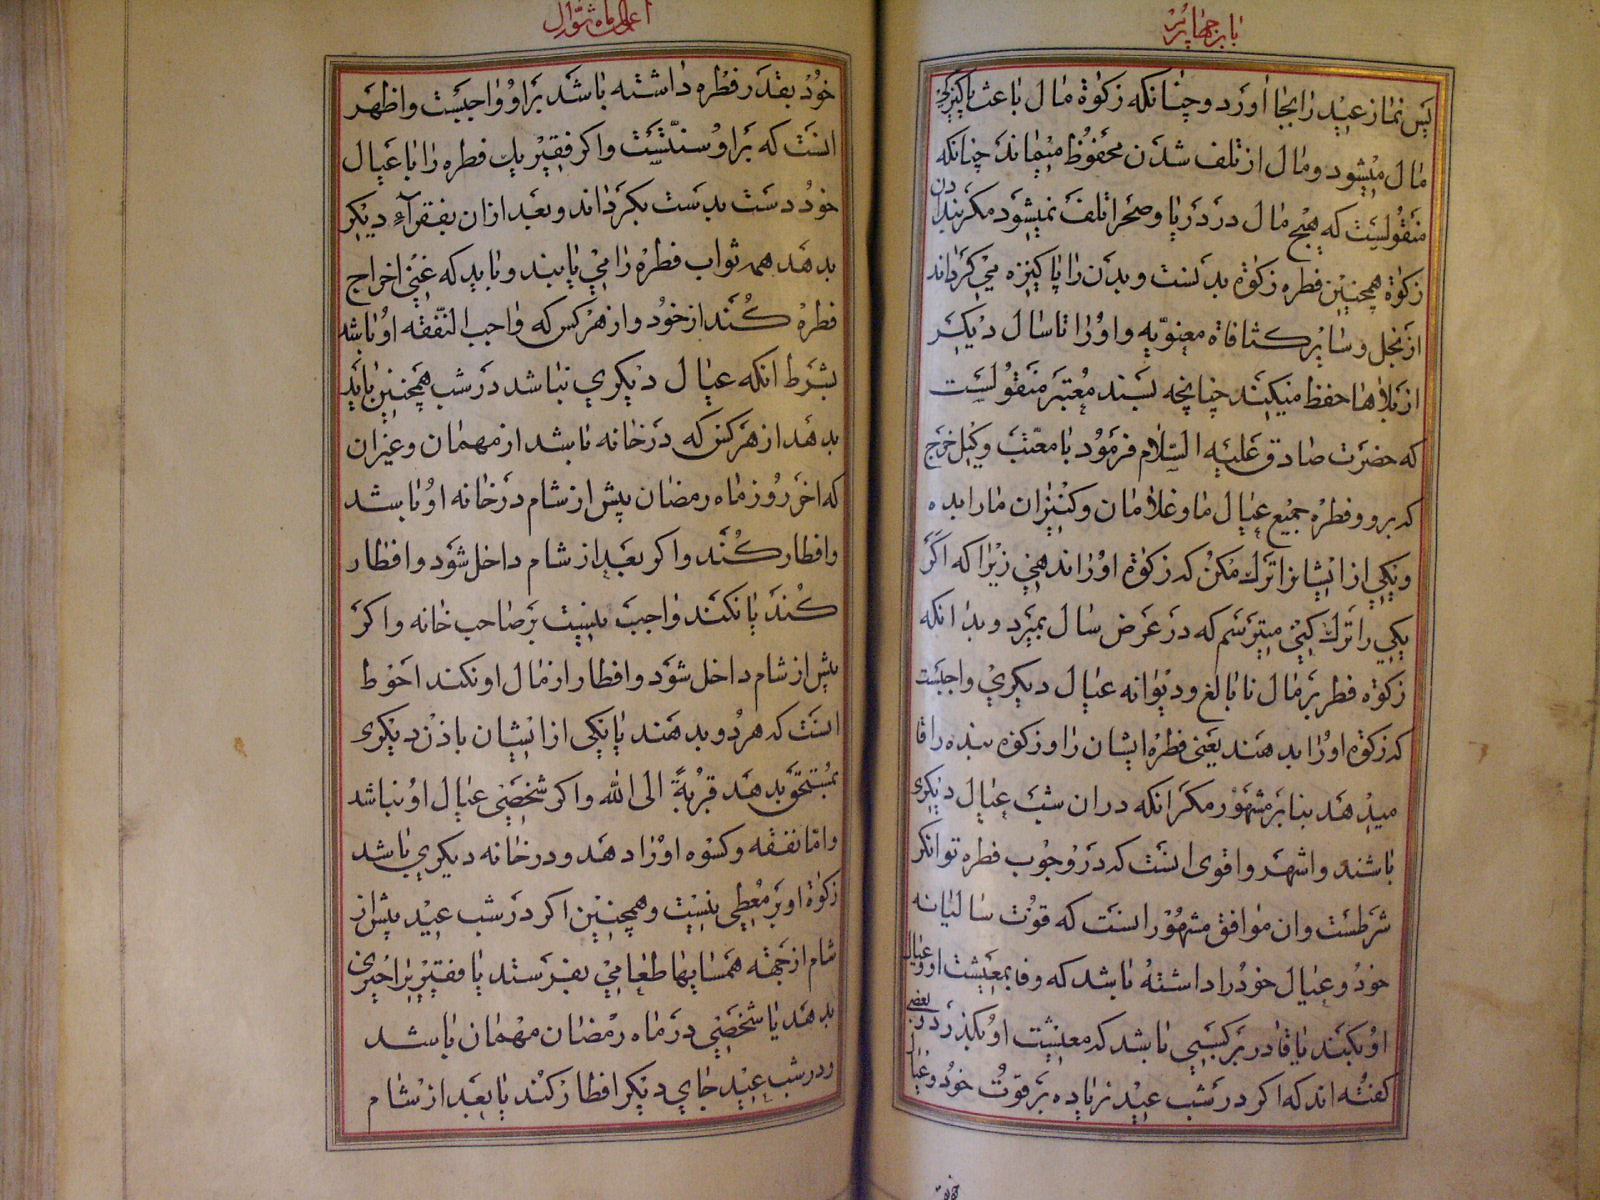 باب چهارم
پس نماز عید را بجا آورد و چنانکه زکوة مال باعث پاکیزکی
مال میشود و مال از تلف شدن محفوظ میماند چنانکه
منقولست که هیچ مال در دریا و صحرا تلف نمیشود مکر بندادن
زکوة همچنین فطره زکوة بدنست و بدن را پاکیزه می کرداند
از بخل و سایر کثافاة معنویه و او را تا سال دیکر
از بلاها حفظ میکند چنانچه بسند معتبر منقولست
که حضرت صادق علیه السلام فرمود با معتب وکیل خرج
که برو و فطره جمیع عیال ما و غلامان و کنیزان ما را بده
و یکی از ایشانرا ترک مکن که زکوة او را ندهی زیرا که اکر
یکی را ترک کنی میترسم که در عرض سال بمیرد و بدانکه
زکوه فطر بر مال نابالغ و دیوانه عیال دیکری واجبست
که زکوه او را بدهند یعنی فطره ایشان را و زکوه بنده را قا
میدهد بنابر مشهور مکر انکه در ان شب عیال دیکری
باشند و اشهر و اقوی انست که در وجوب فطره توانکر
شرطست و ان موافق مشهور انست که قوت سالیانه
خود و عیال خود را داشته باشد که وفا بمعیشت او و عیال
او بکند یا قادر بر کسبی باشد که معیشت او بکذرد و بعضی
کفته اند که اکر در شب عید زیاده بر قوت خود و عیال
اعمال ماه شوال
خود بقدر فطره داشته باشد بر او واجبست و اظهر
انست که بر او سنتست و اکر فقیر یک فطره را با عیال
خود دست بدست بکرداند و بعد از ان بفقرآء دیکر
بدهد همه ثواب فطره را می یابند و باید که غنی اخراج
فطره کند از خود و از هر کس که واجب النفقه او باشد
بشرط انکه عیال دیکری نباشد در شب همچنین باید
بدهد از هر کس که در خانه باشد از مهمان و غیران
که اخر روز ماه رمضان پیش از شام در خانه او باشد
و افطار کند و اکر بعد از شام داخل شود و افطار
کند یا نکند واجب نیست بر صاحب خانه و اکر
پیش از شام داخل شود و افطار از مال او نکند احوط
انست که هر دو بدهند یا یکی از ایشان باذن دیکری
بمستحق بدهد قربة الی الله و اکر شخصی عیال او نباشد
و اما نفقه و کسوه او را دهد و در خانه دیکری باشد
زکوة او بر معطی نیست و همچنین اکر در شب عید پیش از
شام از جهته همسایها طعامی بفرستد یا فقیر را چیزی
بدهد یا شخصی در ماه رمضان مهمان باشد
و در شب عید جای دیکر افطار کند یا بعد از شام